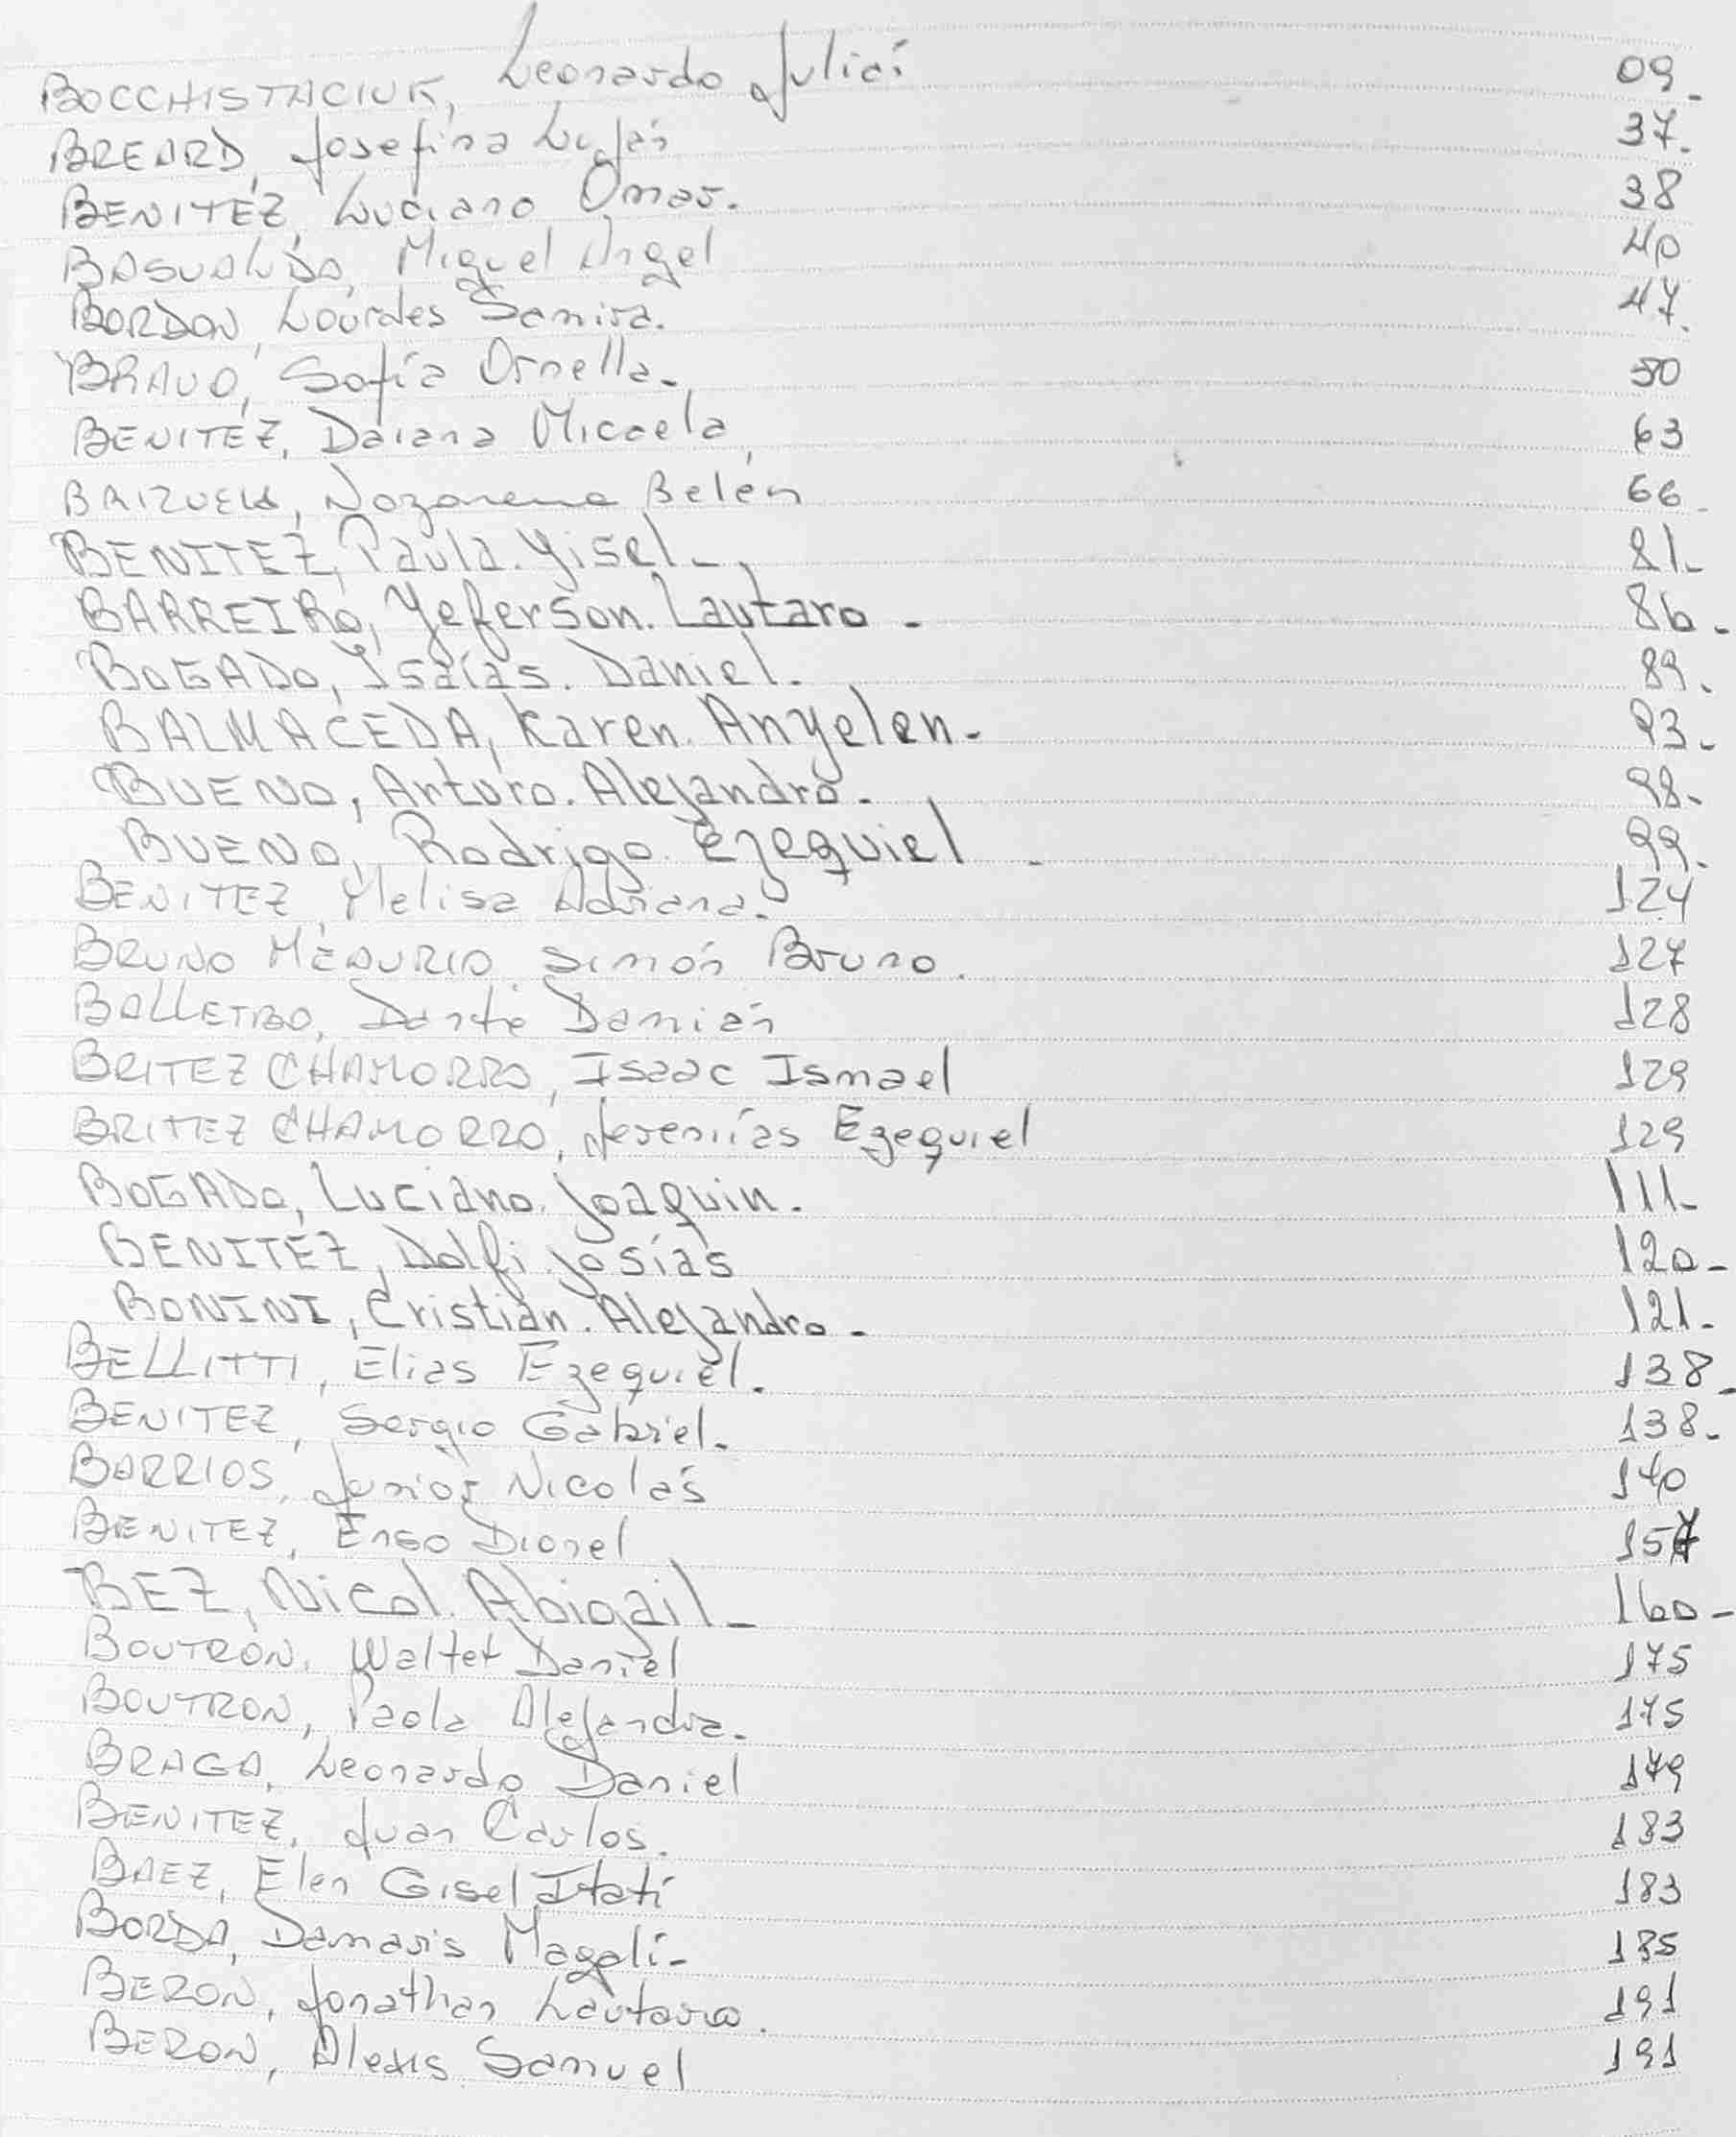 BOCCHISTACIUK, Leonardo Julián 09-
BREARD, Josefina Luján 37.
BENITEZ, Luciano Omar. 38
BASUALDO, Miguel Angel 40
BORDON, Lourdes Samira. 47.
BRAVO, Sofía Ornella- 50
BENITEZ, Daiana Micaela 63
BRIZUELA, Nazarena Belén 66-
BENITEZ, Paula. Yisel- 81-
BARREIRO, Yeferson. Lautaro - 86-
BOGADO, Isaías. Daniel. 89.
BALMACEDA, Karen. Anyelen- 93-
BUENO, Arturo. Alejandro. 98-
BUENO, Rodrigo. Ezequiel - 99.
BENITEZ, Melisa Adriana. 124
BRUNO MEAURIO, Simón Bruno. 127
BALLETBO, Dante Damián 128
BRITEZ CHAMORRO, Isaac Ismael 129
BRITEZ CHAMORRO, Jeremías Ezequiel 129
BOGADO, Luciano. Joaquin. 111-
BENITEZ, Dolfi. Josías 120-
BONINI, Cristian. Alejandro- 121-
BELLITTI, Elias Ezequiel. 138-
BENITEZ, Sergio Gabriel. 138-
BARRIOS, Junior Nicolás 140
BENITEZ, Enso Dionel 157
BEZ, Nicol. Abigail- 160-
BOUTRÓN, Walter Daniel 175
BOUTRON, Paola Alejandra. 175
BRAGA, Leonardo Daniel 179
BENITEZ, Juan Carlos. 183
BAEZ, Elen Gisel Itatí 183
BORDA, Damaris Magalí- 185
BERON, Jonathan Lautaro. 191
BERON, Alexis Samuel 191